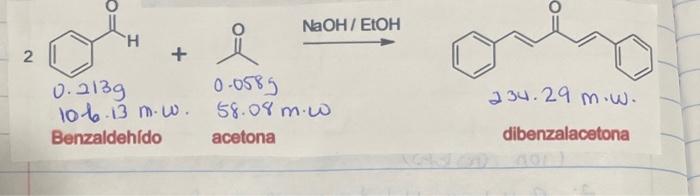 O
H
2
+
O
NaOH / EtOH
O
0.213g
106.13 m.w.
Benzaldehído
0.058g
58.08 m.w
acetona
234.29 m.w.
dibenzalacetona